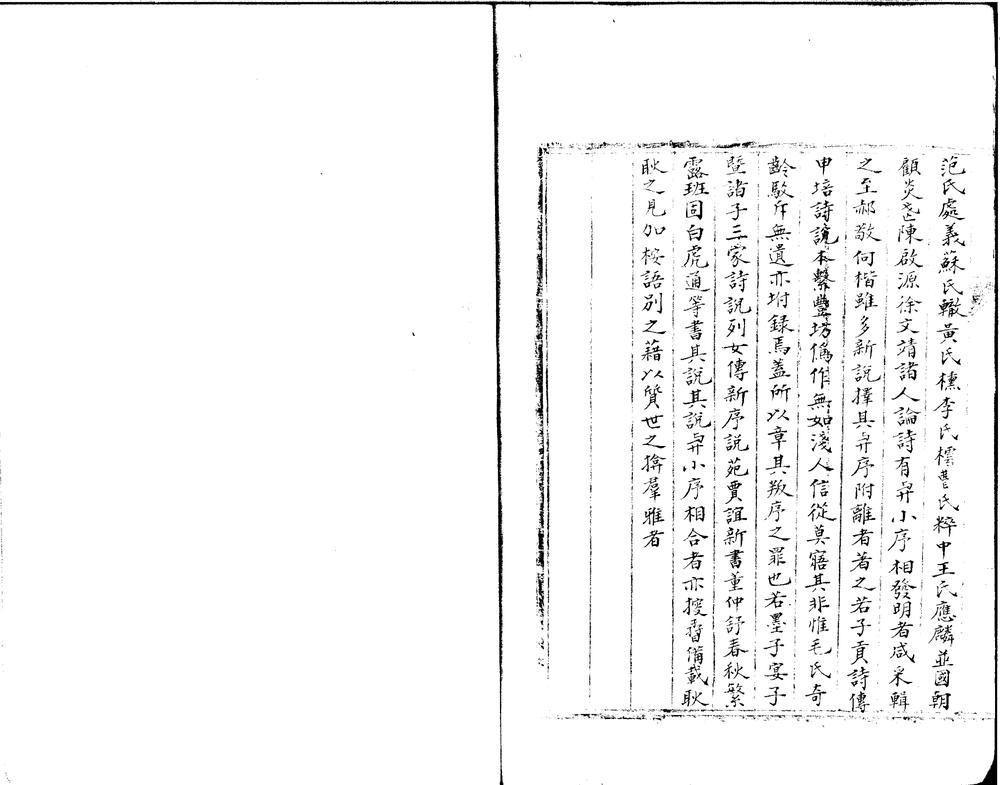 范氏處義蘇氏轍黃氏櫄李氏樗曹氏粹中王氏應麟並國朝
顧炎武陳啟源徐文靖諸人論詩有與小序相發明者咸采輯
之至郝敬何楷雖多新說擇其與序附離者著之若子貢詩傳
申培詩說本繫豐坊僞作無如淺人信從莫寤其非惟毛氏奇
齡駁斥無遺亦坿録焉蓋所以章其叛序之罪也若墨子宴子
暨諸子三家詩說列女傳新序說苑賈誼新書董仲舒春秋繁
露班固白虎通等書其說其說與小序相合者亦搜香備載耿
耿之見加桉語別之藉以質世之揜羣雅者